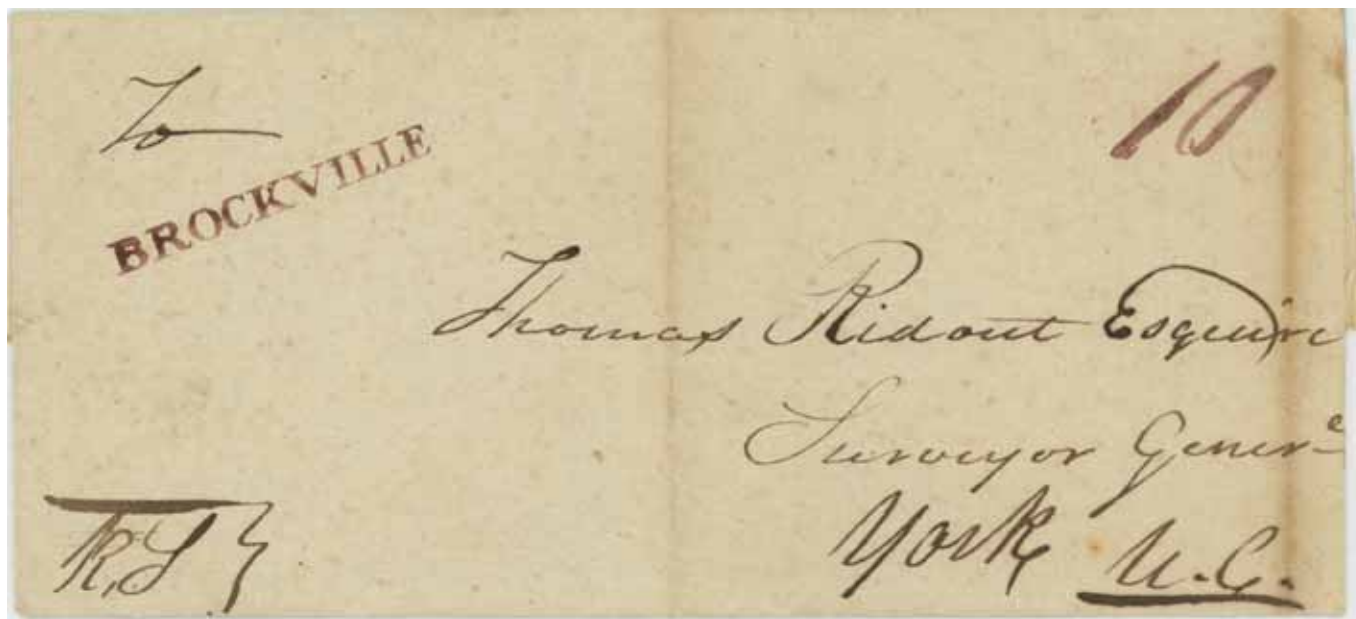 To
10
BROCKVILLE
Thomas Ridout Esquire
Surveyor Gener
York U.C.